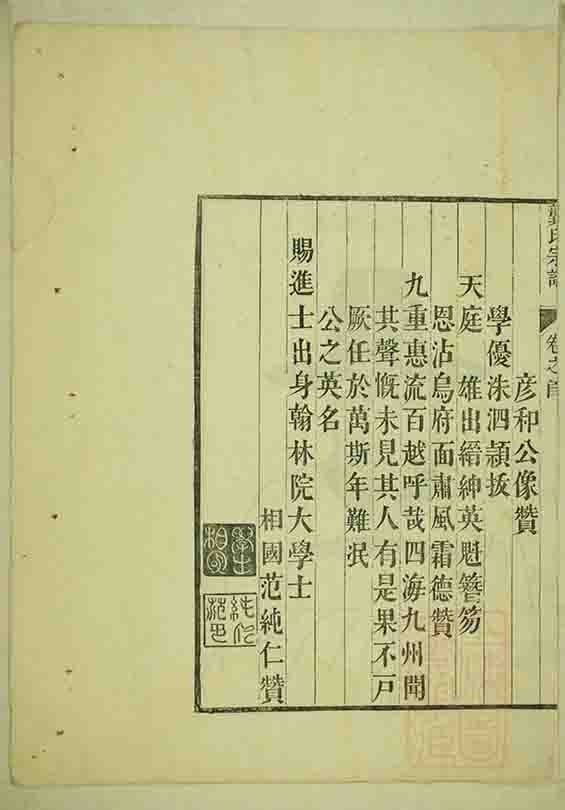 龔氏宗譜
卷之首
彦和公像贊
學優洙泗頴拔
天庭 雄出縉紳英魁簪笏
恩沾烏府面肅風霜德贊
九重惠流百越呼哉四海九州聞
其聲慨未見其人有是果不戸
厥任於萬斯年難泯
公之英名
賜進士出身翰林院大學士
相國范純仁贊
學士
相國
純仁
范印